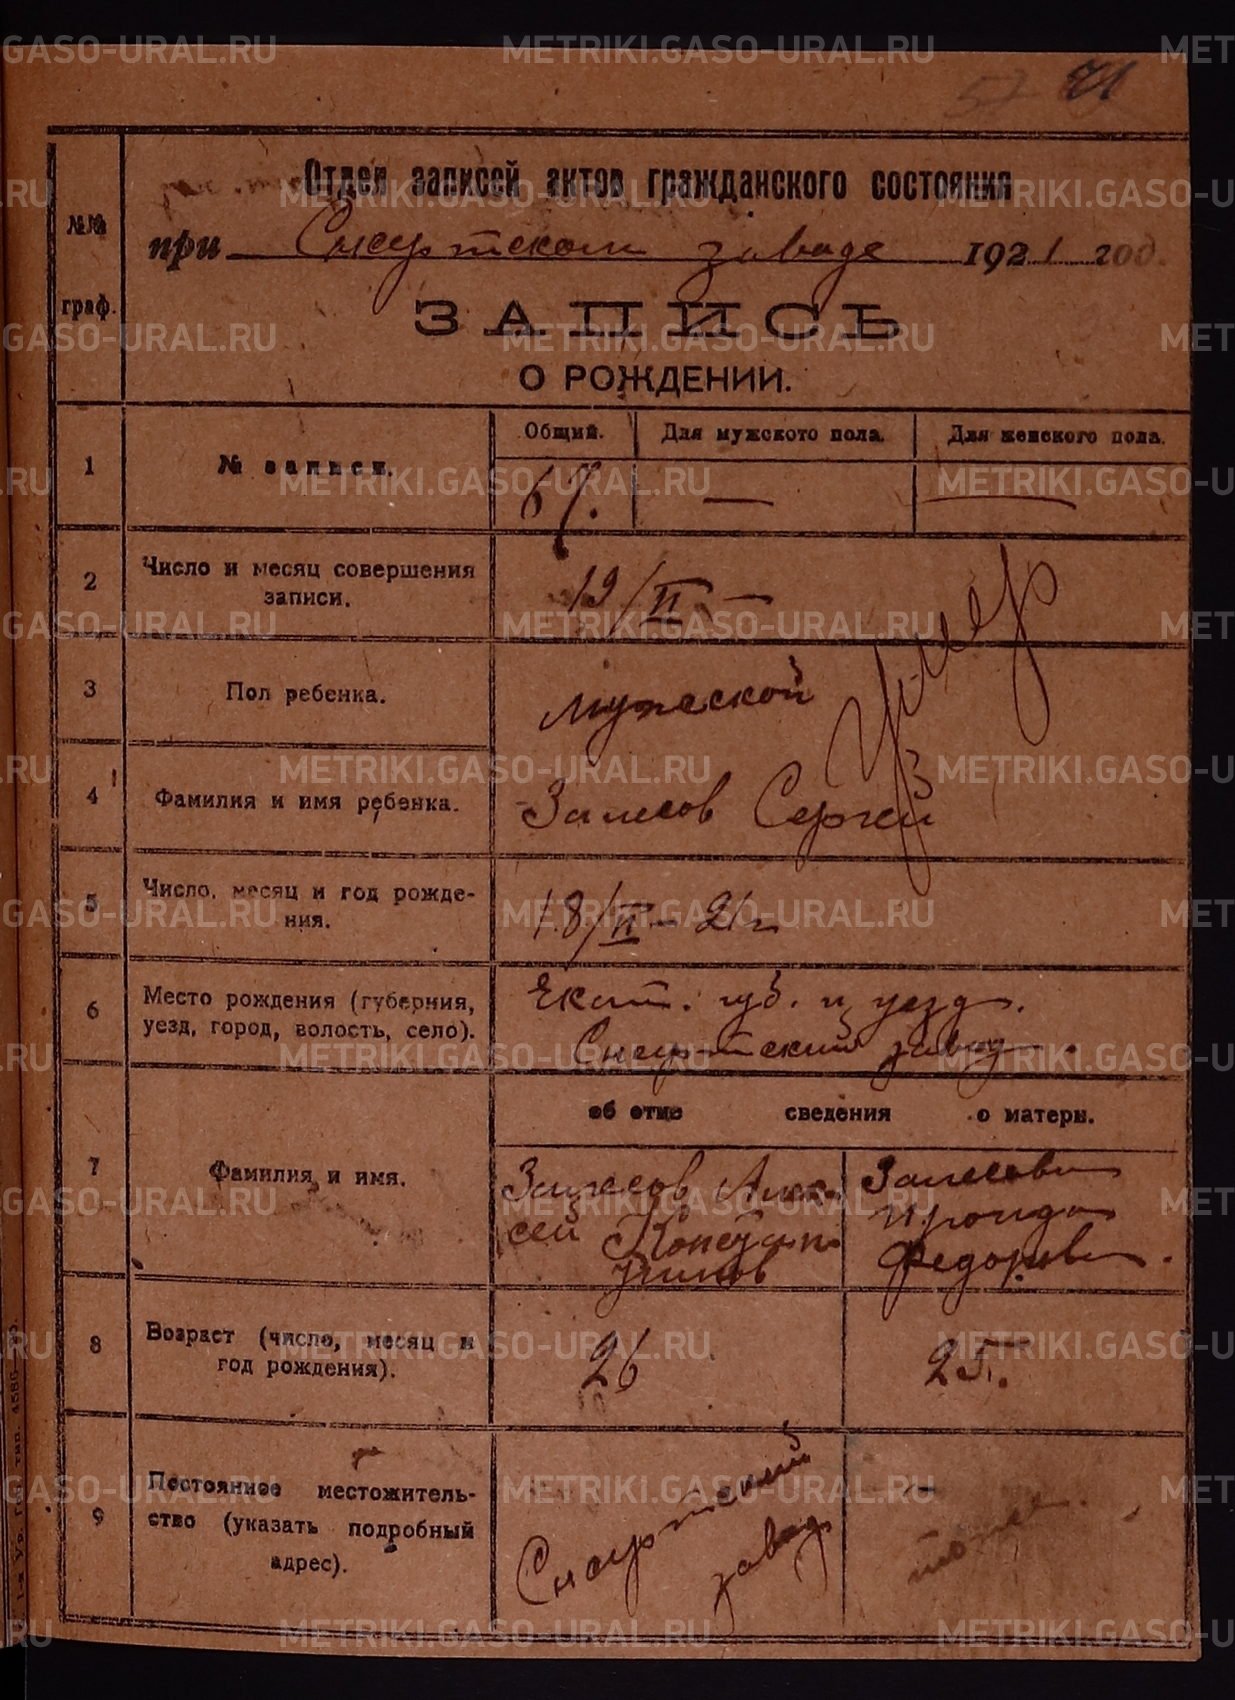 METRIKI.GASO-URAL.RU
57 71
№№ граф.
Отдел записей актов гражданского состояния
при Сысертском заводе 1921 год.
ЗАПИСЬ
О РОЖДЕНИИ.
1 № записи.
Общий. Для мужского пола. Для женского пола.
67. — —
2 Число и месяц совершения записи.
19/II —
умер
3 Пол ребенка.
мужской
4 Фамилия и имя ребенка.
Залесов Сергей
5 Число, месяц и год рождения.
18/II – 21 г
6 Место рождения (губерния, уезд, город, волость, село).
Екат. губ. и уезд.
Сысертский завод.
об отце сведения о матери.
7 Фамилия и имя.
Залесов Алексей
Константинов
Залесова
Ираида
Федоровна.
8 Возраст (число, месяц и год рождения).
26
25.
9 Постоянное местожительство (указать подробный адрес).
Сысертский
завод
тоже.